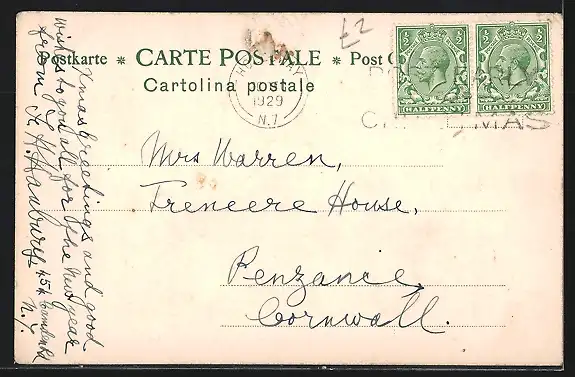 £2
Postkarte * CARTE POSTALE * Post C
Cartolina postale
HOLLOWAY
1929
N.7
POST EARLY
CHRISTMAS
½ ½
HALFPENNY
½ ½
HALFPENNY
Mrs Warren,
Treneere House,
Penzance,
Cornwall.
Xmas Greetings and good
wishes to you all, for the New Year
from
N.7.